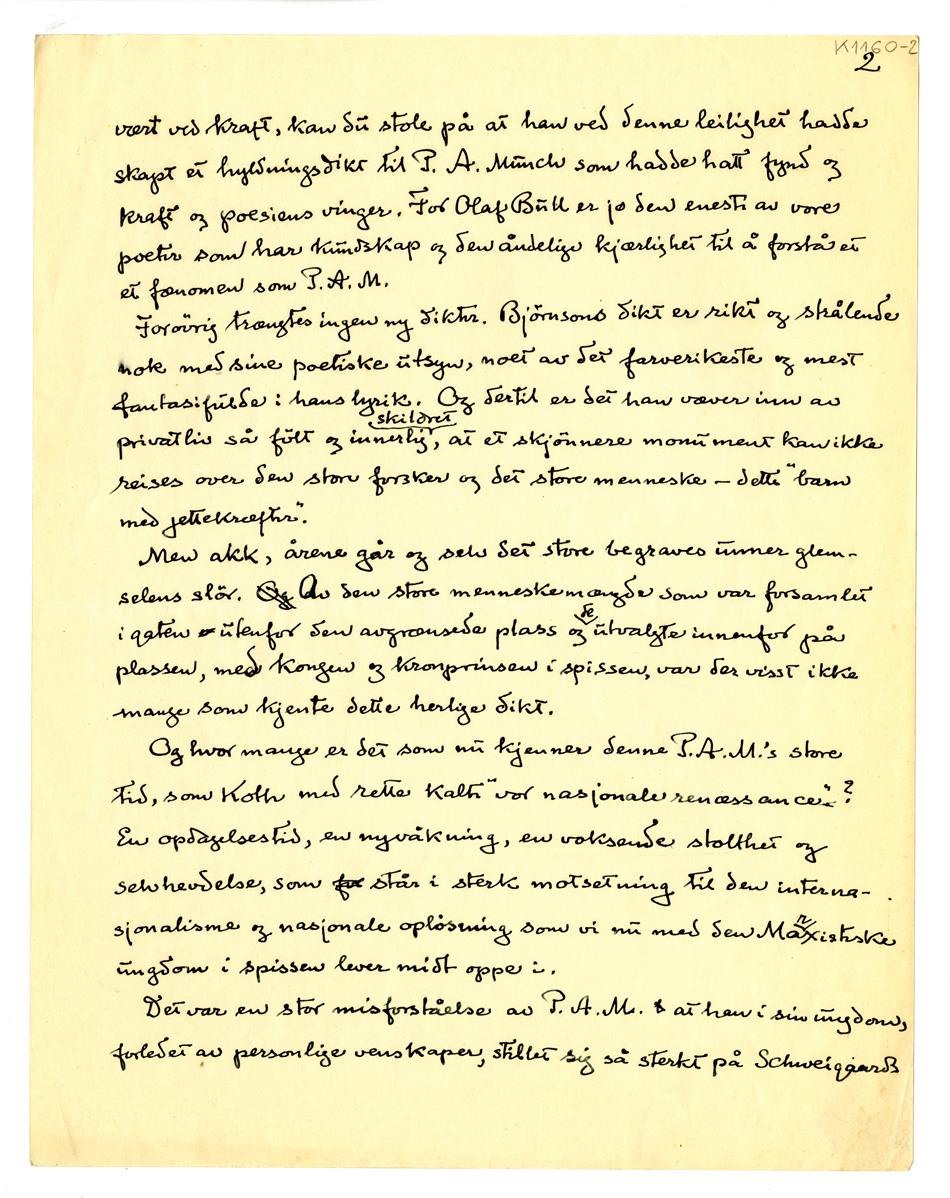 K1160-2
2
vært ved kraft, kan du stole på at han ved denne leilighet hadde
skapt et hyldningsdikt til P. A. Munch som hadde hatt fynd og
kraft og poesiens vinger. For Olaf Bull er jo den eneste av vore
poeter som har kundskap og den åndelige kjærlighet til å forstå et
et fænomen som P. A. M.
Forövrig trængtes ingen ny dikter. Björnsons dikt er rikt og strålende
nok med sine poetiske utsyn, noet av det farverikeste og mest
fantasifulde i hans lyrik. Og dertil er det han væver inn av
skildret
privatliv så fölt og innerlig, at et skjönnere monument kan ikke
reises over den store forsker og det store menneske – dette "barn
med jettekræfter".
Men akk, årene går og selv det store begraves unner glem-
selens slör. Og Av den store menneskemængde som var forsamlet
de
i gaten utenfor den avgrænsede plass og utvalgte innenfor på
plassen, med kongen og kronprinsen i spissen, var der visst ikke
mange som kjente dette herlige dikt.
Og hvor mange er det som nu kjenner denne P. A. M.'s store
tid, som Koth med rette kalte "vor nasjonale renæssance"?
En opdagelsestid, en nyvåkning, en voksende stolthet og
selvhevdelse, som står i sterk motsetning til den interna-
sjonalisme og nasjonale oplösning som vi nu med den Marxistiske
ungdom i spissen lever midt oppe i.
Det var en stor misforståelse av P. A. M. at han i sin ungdom,
forledet av personlige venskaper, stillet sig så sterkt på Schweigaards